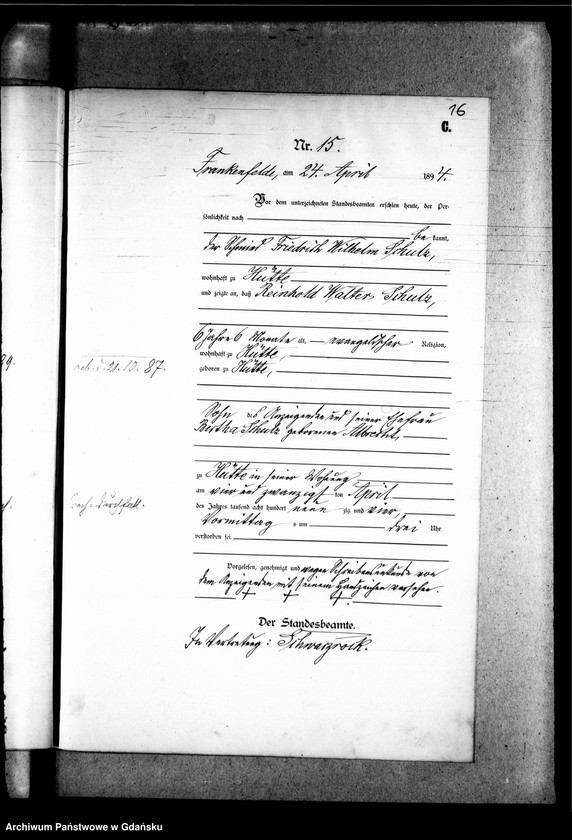 16
C.
Nr. 15.
Frankenfelde, am 24. April 1894.
Vor dem unterzeichneten Standesbeamten erschien heute, der Per-
sönlichkeit nach
be kannt,
der Schmied Friedrich Wilhelm Schulz,
wohnhaft zu Hütte
und zeigte an, daß Reinhold Walter Schulz,
6 Jahre 6 Monate alt, evangelischer Religion,
wohnhaft zu Hütte,
geboren zu Hütte,
Sohn des Anzeigenden und seiner Ehefrau
Bertha Schulz geborenen Albrecht,
zu Hütte in seiner Wohnung
am vier und zwanzigsten April
des Jahres tausend acht hundert neun zig und vier,
Vormittag s um drei Uhr
verstorben sei.
Vorgelesen, genehmigt und wegen Schreibensunkunde von
dem Anzeigenden mit seinem Handzeichen versehen.
+ + +
Der Standesbeamte.
In Vertretung: Schwarzrock.
89.
geb. d. 21.10.87.
Archiwum Państwowe w Gdańsku